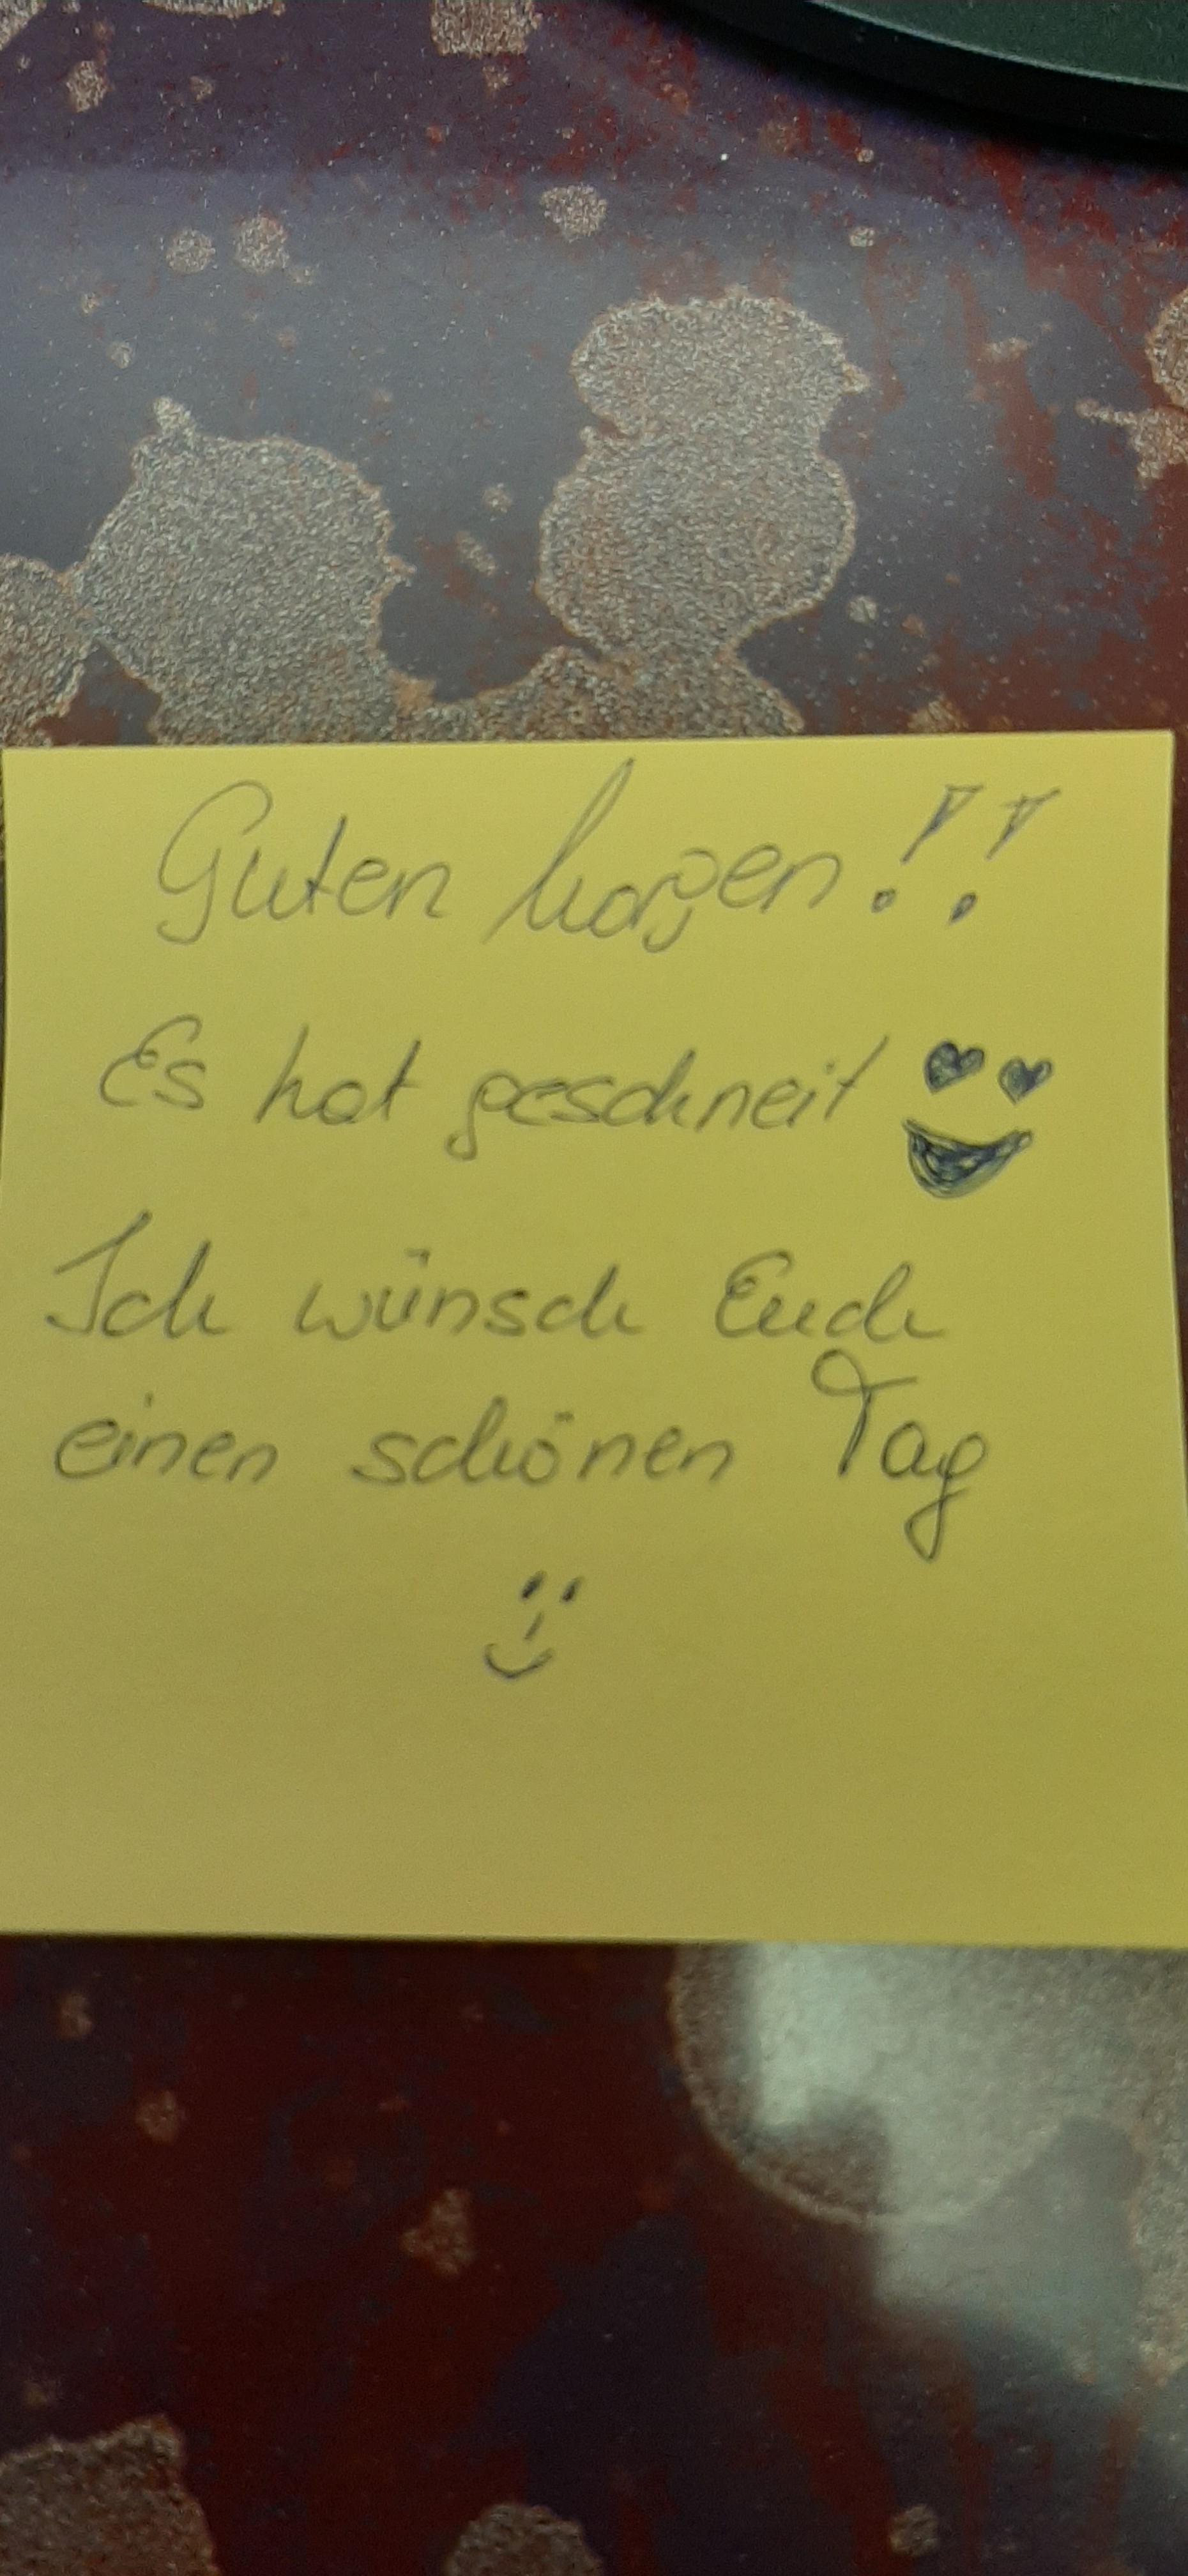 Guten Morgen!!
Es hat geschneit
Ich wünsch Euch
einen schönen Tag